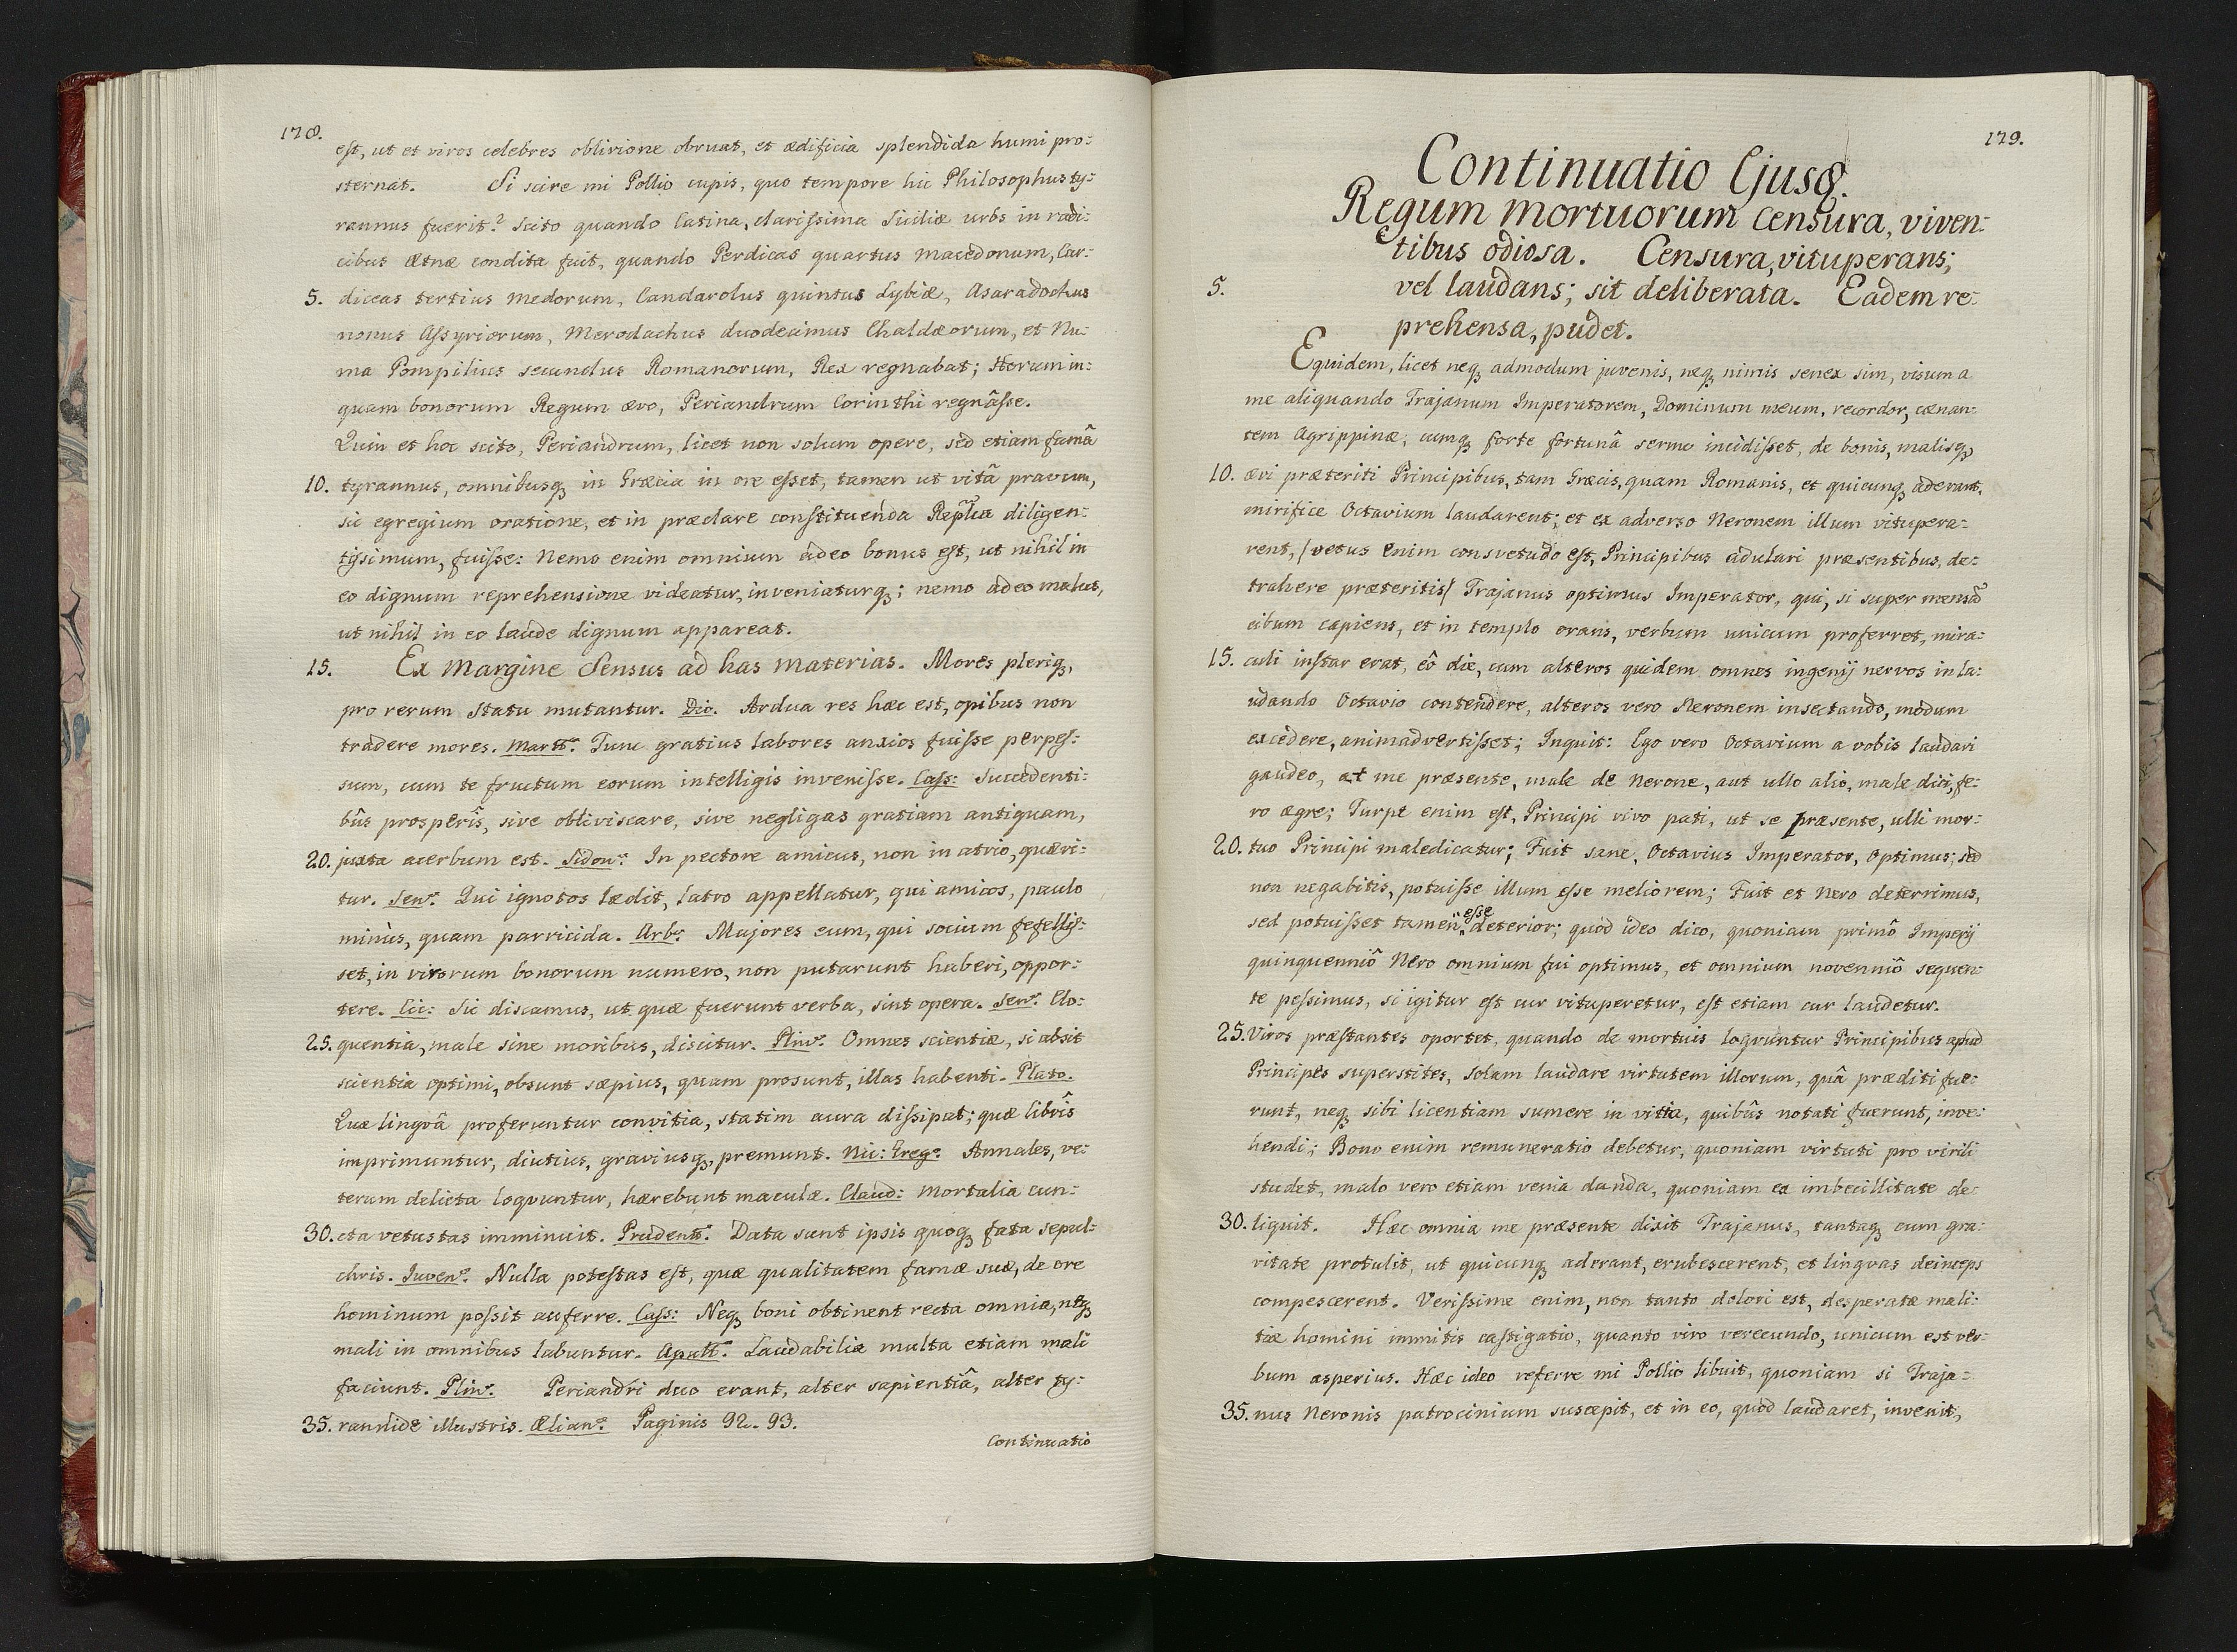 178.
est, ut et viros celebres oblivione obruat, et ædificia splendida humi pro:
sternat. Si scire mi Pollio cupis, quo tempore hic Philosophus ty:
rannus fuerit? Scito quando Catina, clarissima Siciliæ urbs in radi:
cibus Ætnæ condita fuit, quando Perdicas quartus Macedonum, Car:
5. diceas tertius Medorum, Candarolus quintus Lybiæ, Asaradochus
nonus Assyriorum, Merodachus duodecimus Chaldæorum, et Nu:
ma Pompilius secundus Romanorum, Rex regnabat; Horum in:
quam bonorum Regum ævo, Periandrum Corinthi regnâsse.
Quin et hoc scito, Periandrum, licet non solum opere, sed etiam famâ
10. tyrannus, omnibusq in Græcia in ore esset, tamen ut vitâ pravum,
sic egregium oratione, et in præclare constituenda Replica diligen:
tissimum, fuisse: Nemo enim omnium adeo bonus est, ut nihil in
eo dignum reprehensione videatur, inveniaturq; nemo adeo malus,
ut nihil in eo laude dignum appareat.
15. Ex Margine Sensus ad has materias. Mores pleriq,
pro rerum statu mutantur. Dio. Ardua res hæc est, opibus non
tradere mores. Martt. Tunc gratius labores anxios fuisse perpes:
sum, cum te fructum eorum intelligis invenisse. Cass: Succedenti:
bûs prosperîs, sive obliviscare, sive negligas gratiam antiquam,
20. juxta acerbum est. Sidon. In pectore amicus, non in atrio, quæri:
tur. Sen. Qui ignotos lædit, latro appellatur, qui amicos, paulo
minùs, quam parricida. Arb. Majores eum, qui socium fefellis:
set, in virorum bonorum numero, non putarunt haberi, oppor:
tere. Cic: Sic discamus, ut quæ fuerunt verba, sint opera. Sen. Elo:
25. quentia, male sine moribus, discitur. Plin. Omnes scientiæ, si absit
scientia optimi, obsunt sæpius, quam prosunt, illas habenti. Plato.
Quæ lingvâ proferuntur convitia, statim aura dissipat; quæ librîs
imprimuntur, diutius, graviusq, premunt. Nic: Greg. Annales, ve:
terum delicta loqvuntur, hærebunt maculæ. Claud: Mortalia cun:
30. cta vetustas imminuit. Prudentt. Data sunt ipsis quoq fata sepul:
chris. Juven. Nulla potestas est, quæ qualitatem famæ suæ, de ore
hominum possit auferre. Cass: Neq boni obtinent recta omnia, neq
mali in omnibus labuntur. Apull. Laudabilia multa etiam mali
faciunt. Plin. Periandri duo erant, alter sapientiâ, alter ty:
35. rannide illustris. Ælian. Paginis 92. 93.
Continuatio
179.
Continuatio Ejusq.
Regum mortuorum censura, viven:
tibus odiosa. Censura, vituperans;
5. vel laudans; sit deliberata. Eadem re:
prehensa, pudet.
Equidem, licet neq admodum juvenis, neq nimis senex sim, visum a
me aliquando Trajanum Imperatorem, Dominum meum, recordor, cænan:
tem Agrippinæ, cumq forte fortunâ sermo incidisset, de bonis, malisq,
10. ævi præteriti Principibus, tam Græcis, quam Romanis, et quicunq aderant,
mirifice Octavium laudarent; et ex adverso Neronem illum vitupera:
rent, /vetus enim consvetudo est, Principibus adulari præsentibus, de:
trahere præteritis/ Trajanus optimus Imperator, qui, si super mensâ
cibum capiens, et in templo orans, verbum unicum proferret, mira:
15. culi instar erat, eô die, cum alteros quidem omnes ingenij nervos in la:
udando Octavio contendere, alteros vero Neronem insectando, modum
excedere, animadvertisset; Inquit: Ego vero Octavium a vobis laudari
gaudeo, at me præsente, male de Nerone, aut ullo alio, male dici, fe:
ro ægre; Turpe enim est, Principi vivo pati, ut se præsente, ulli mor:
20. tuo Principi maledicatur; Fuit sane, Octavius Imperator, Optimus; sed
non negabitis, potuisse illum esse meliorem; Fuit et Nero deterrimus,
sed potuisset tamen esse deterior; quod ideo dico, quoniam primô Imperij
quinquenniô Nero omnium fui optimus, et omnium novenniô sequen:
te pessimus, si igitur est cur vituperetur, est etiam cur laudetur.
25. Viros præstantes oportet, quando de mortuis loqvuntur Principibus apud
Principes superstites, solam laudare virtutem illorum, quâ præditi fue:
runt, neq sibi licentiam sumere in vitia, quibûs notati fuerunt, inve:
hendi; Bono enim remuneratio debetur, quoniam virtuti pro virili
studet, malo vero etiam venia danda, quoniam ex imbecillitate de:
30. liquit. Hæc omnia me præsente dixit Trajanus, tantaq cum gra:
vitate protulit, ut quicunq aderant, erubescerent, et lingvas deinceps
compescerent. Verissime enim, non tanto dolori est, desperatæ mali:
tiæ homini immitis castigatio, quanto viro verecundo, unicum est ver:
bum asperius. Hæc ideo referre mi Pollio libuit, quoniam si Traja:
35. nus Neronis patrocinium suscepit, et in eo, quod laudaret, invenit,